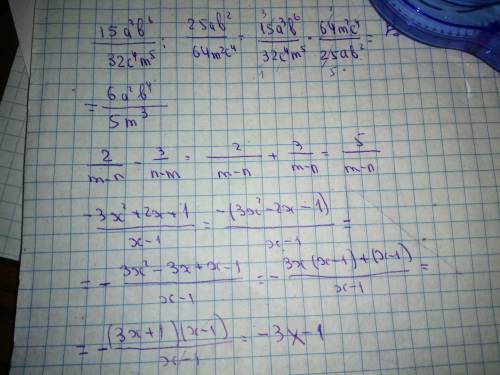 15a³b⁶/32c⁴m⁵ : 25ab²/64m²c⁴ = 15a³b⁶/32c⁴m⁵ · 64m²c⁴/25ab² =
= 6a²b⁴/5m³
2/m-n - 3/n-m = 2/m-n + 3/m-n = 5/m-n
-3x²+2x+1/x-1 = -(3x²-2x-1)/x-1 =
= - 3x²-3x+x-1/x-1 = - 3x(x-1)+(x-1)/x-1 =
= - (3x+1)(x-1)/x-1 = -3x-1